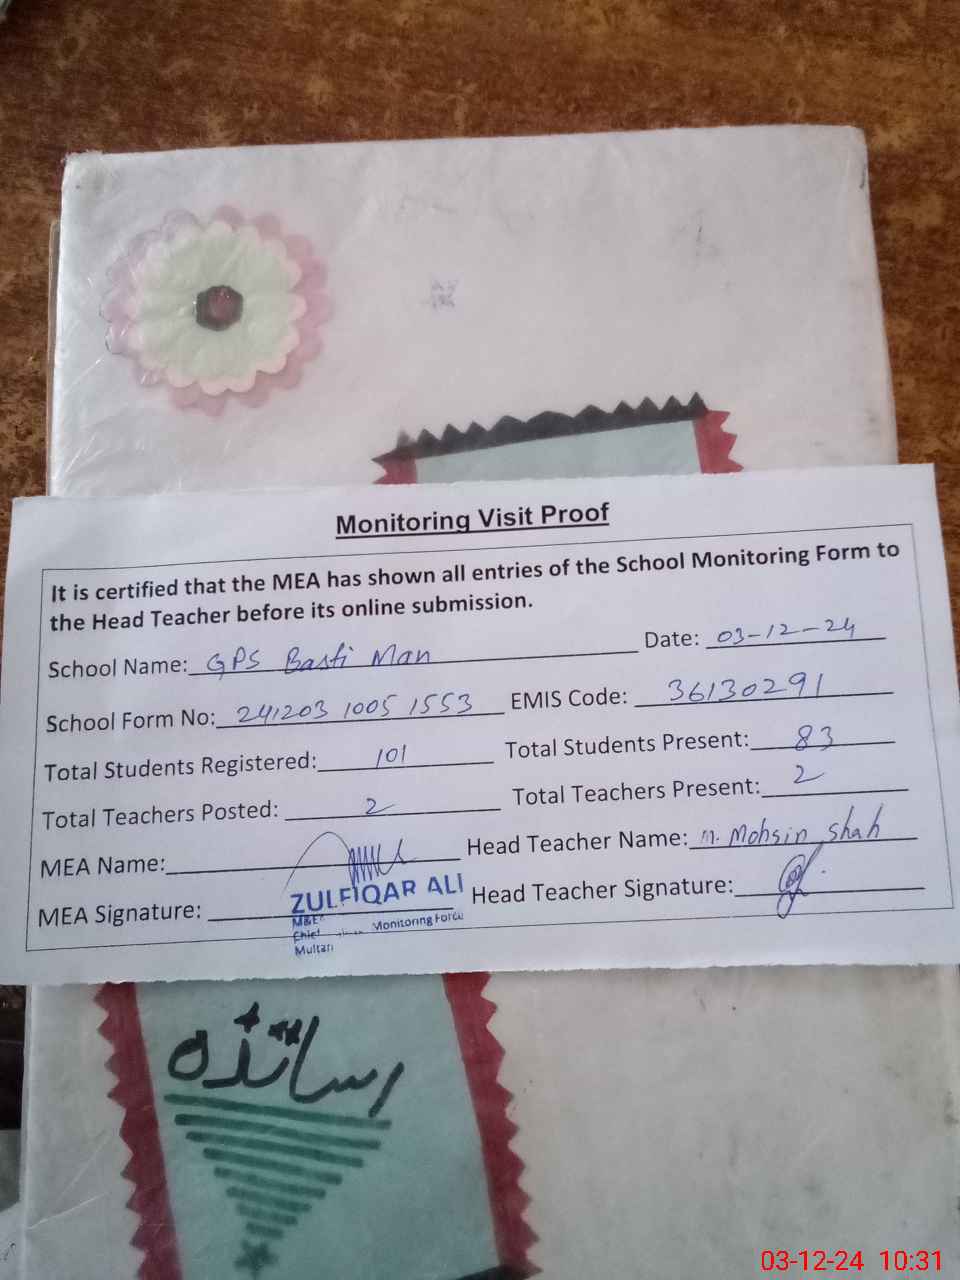 Monitoring Visit Proof
It is certified that the MEA has shown all entries of the School Monitoring Form to
the Head Teacher before its online submission.
School Name: GPS Basti Man Date: 03-12-24
School Form No: 241203 1005 1553 EMIS Code: 36130291
Total Students Registered: 101 Total Students Present: 83
Total Teachers Posted: 2 Total Teachers Present: 2
MEA Name: Head Teacher Name: M. Mohsin Shah
ZULFIQAR ALI
MEA Signature: Head Teacher Signature:
Monitoring Force
Multan
اساتذہ
03-12-24 10:31